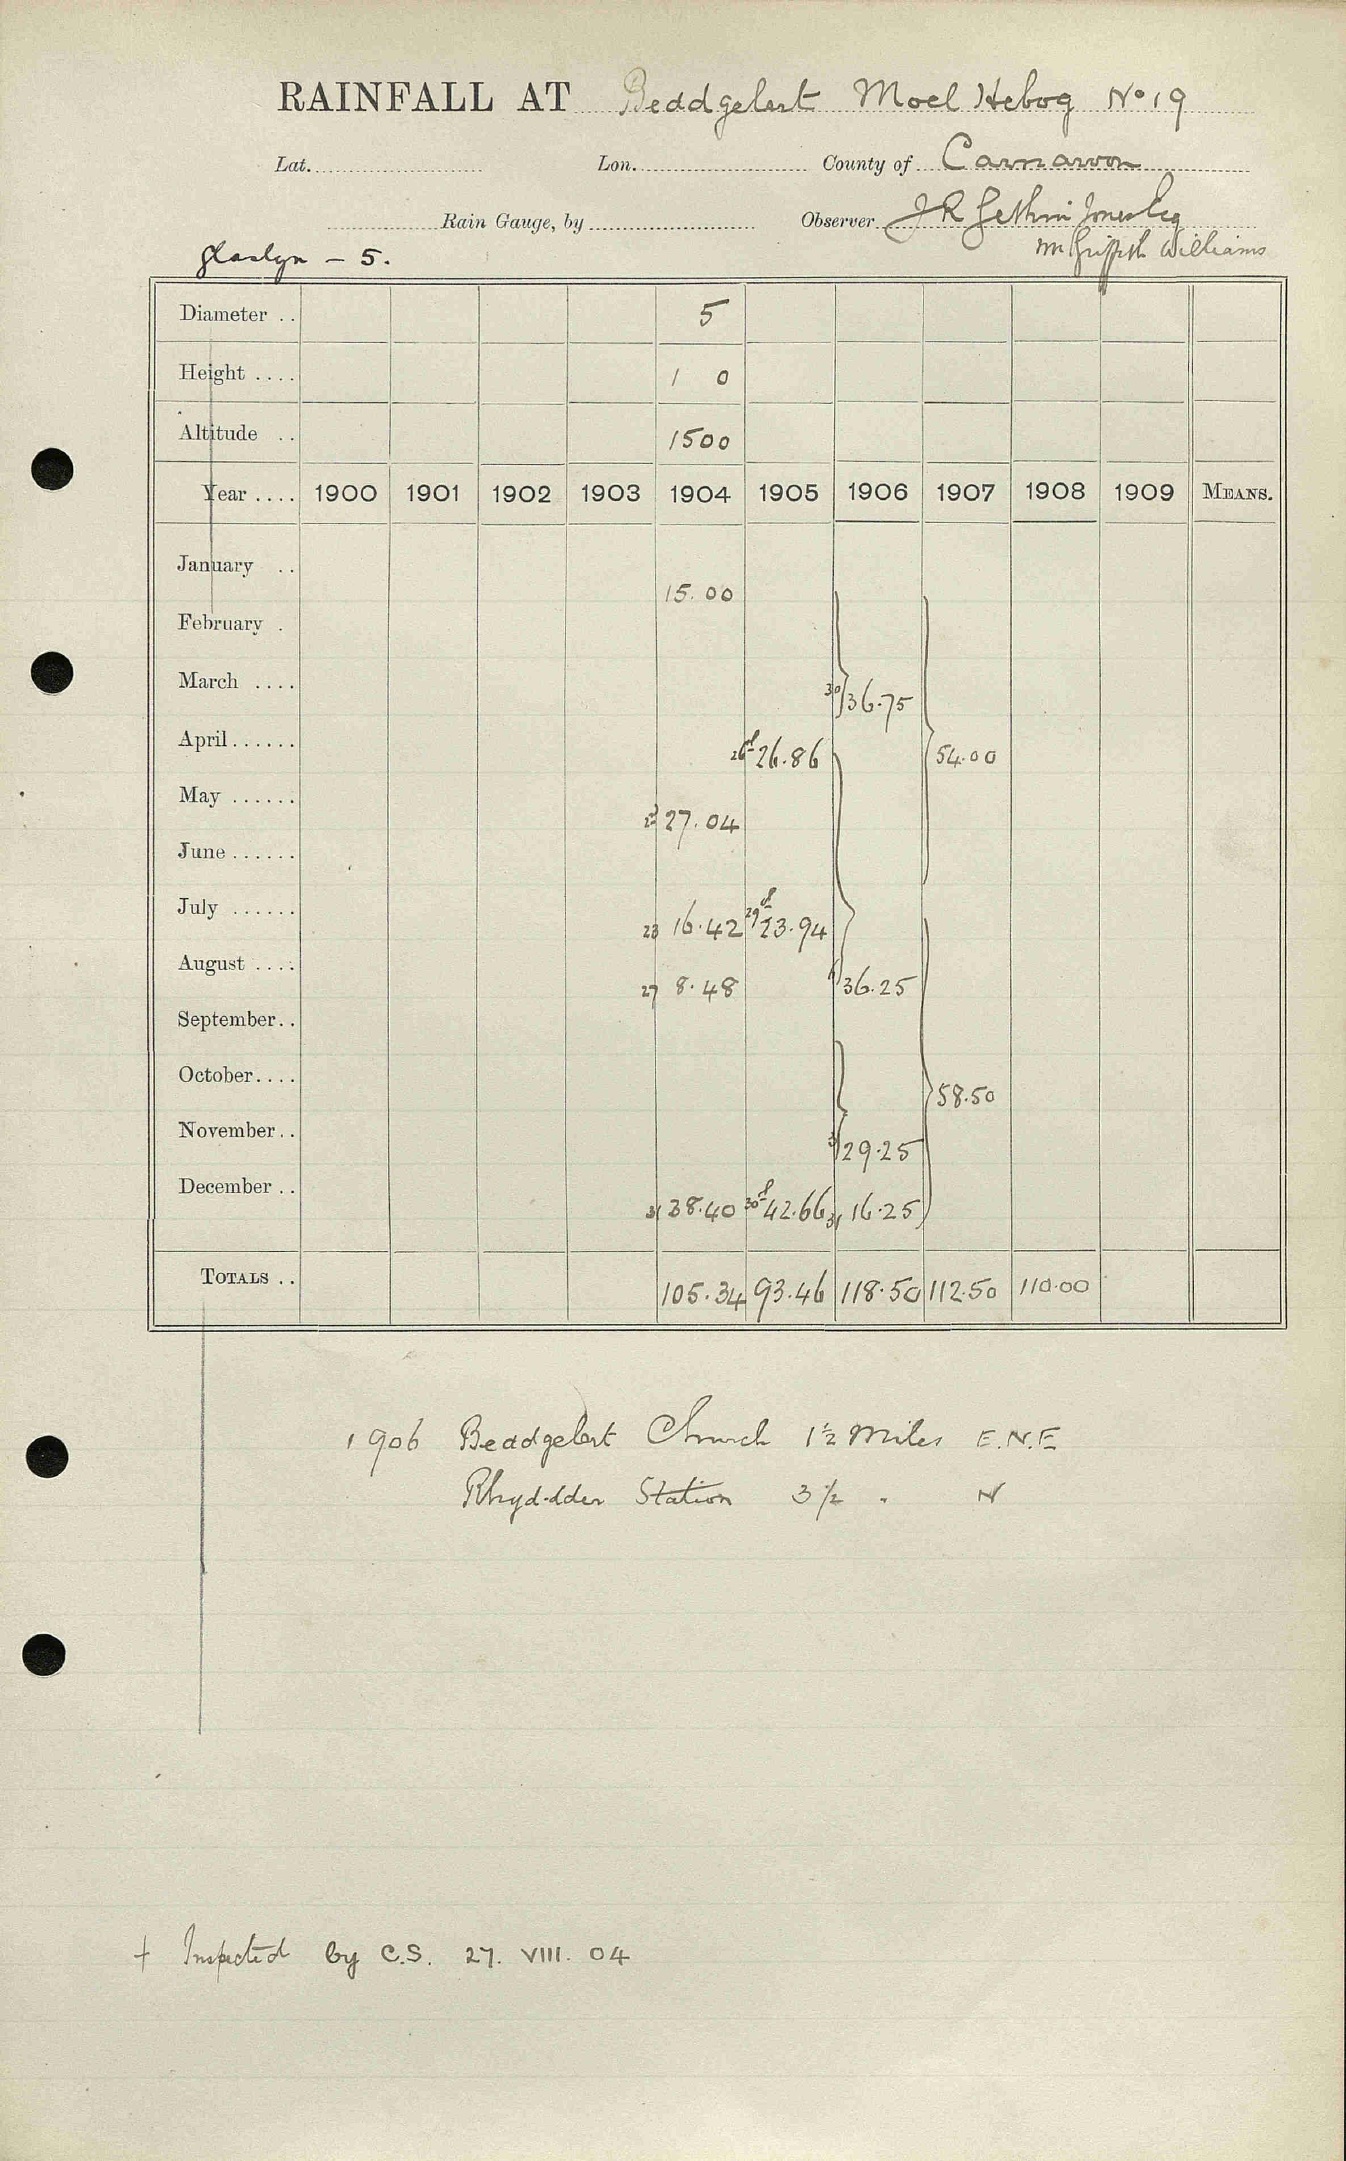 RAINFALL AT Beddgelert Moel Hebog No 19
Lat. Lon. County of Carnarvon
Rain Gauge, by Observer J R Gethin Jones Esq
Glaslyn - 5. Mr Griffith Williams
Diameter .. 5
Height .... 1 0
Altitude .. 1500
Year .... 1900 1901 1902 1903 1904 1905 1906 1907 1908 1909 MEANS.
January ..
15.00
February .
March .... 30 36.75
April...... 26d 26.86 54.00
May ......
27.04
June......
July ...... 23 16.42 29d 23.94
August ....
27 8.48 36.25
September..
October....
58.50
November..
29.25
December ..
31 38.40 30d 42.66 31 16.25
TOTALS .. 105.34 93.46 118.50 112.50 110.00
1906 Beddgelert Church 1½ Miles E.N.E
Rhyd-dder Station 3½ " N
† Inspected by C.S. 27. VIII. 04